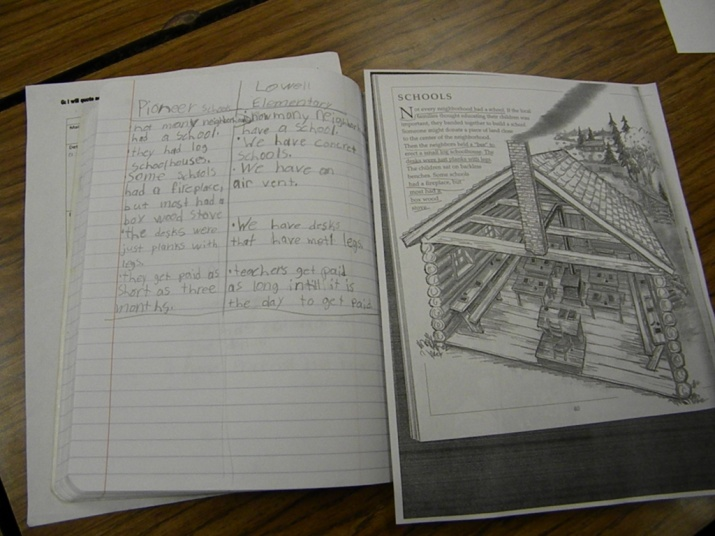 Pioneer Schools
not many neighbor
had a school.
• they had log
schoolhouses.
Some schools
had a fireplace,
but most had a
box wood stove
• the desks were
just planks with
legs
• they get paid as
short as three
months.
Lowell
Elementary
• now many neighbor
have a school.
• We have concret
schools.
• We have an
air vent.
• We have desks
that have metl legs
• teachers get paid
as long intill it is
the day to get paid.
SCHOOLS
Not every neighborhood had a school. If the
families thought educating their children was
important, they banded together to build a school.
Someone might donate a piece of land close
to the center of the neighborhood.
Then the neighbors held a "bee" to
erect a small log schoolhouse. The
desks were just planks with legs.
The children sat on backless
benches. Some schools
had a fireplace, but
most had a
box wood
stove.